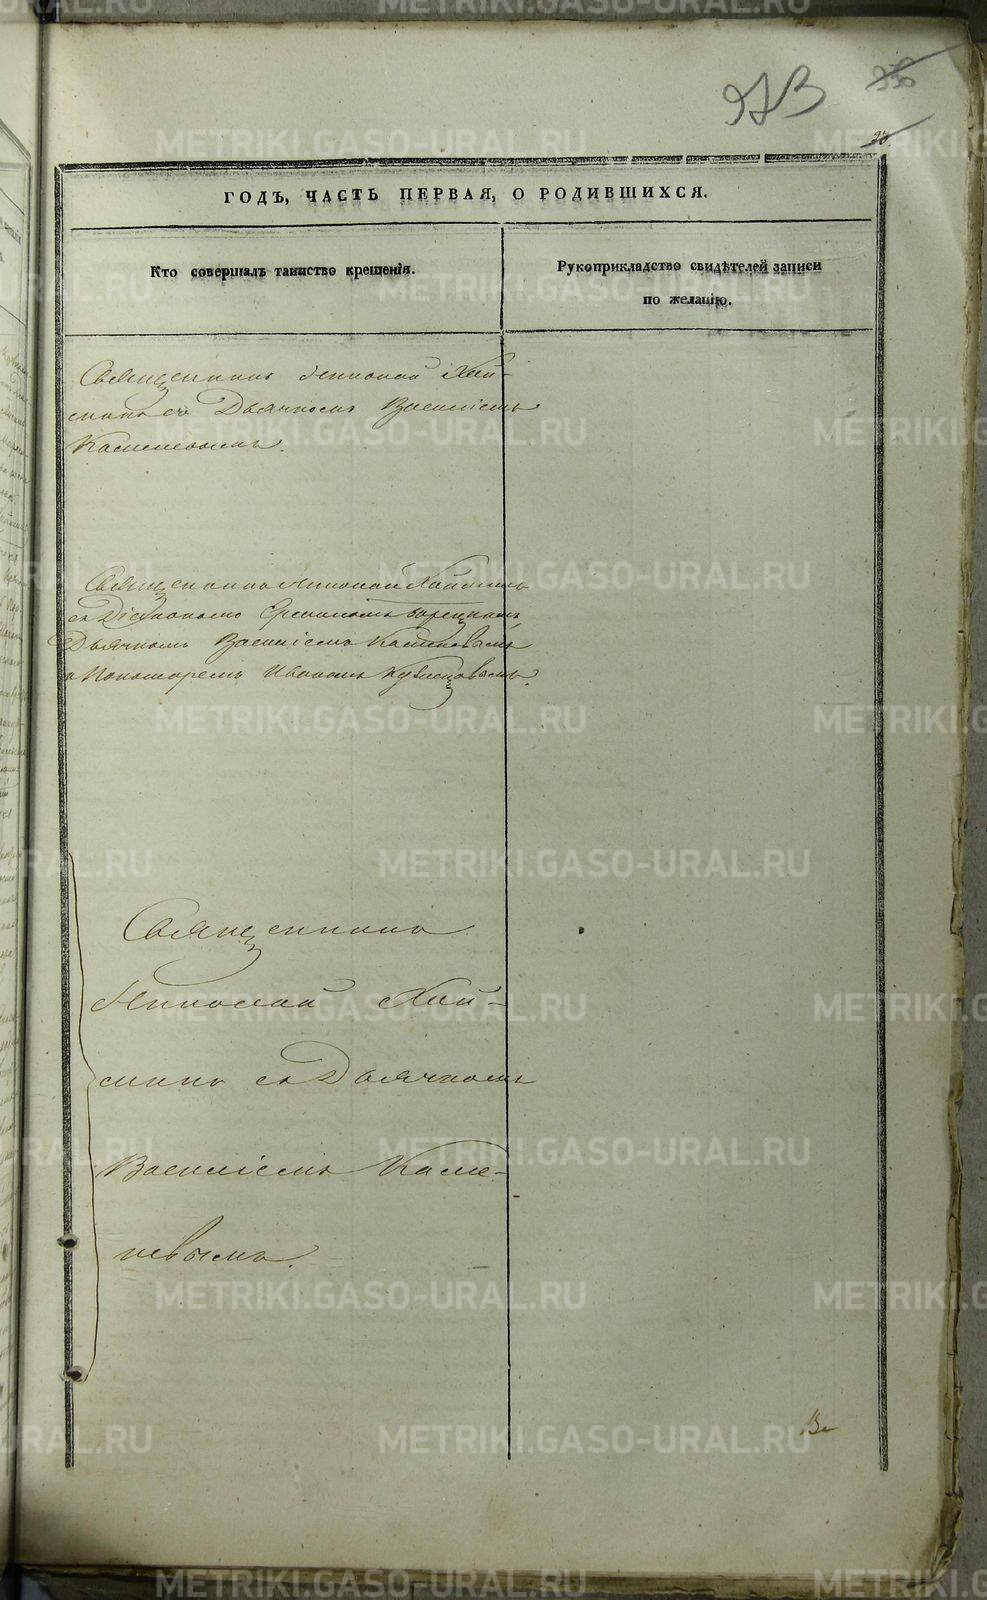 973
23
ГОДЪ, ЧАСТЬ ПЕРВАЯ, О РОДИВШИХСЯ.
Кто совершалъ таинство крещенія.
Рукоприкладство свидѣтелей записи
по желанію.
Священникъ Николай Хай-
минъ съ Дьячкомъ Василіемъ
Каменевымъ.
Священникъ Николай Хайминъ
съ Діакономъ
Дьячкомъ Василіемъ Каменевымъ
и Пономаремъ Иваномъ Кузнецовымъ.
Священникъ
Николай Хай-
минъ съ Дьячкомъ
Василіемъ Каме-
невымъ.
METRIKI.GASO-URAL.RU